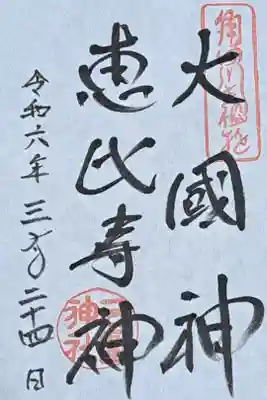 大國神
恵比寿神
令和六年三月二十四日
神社